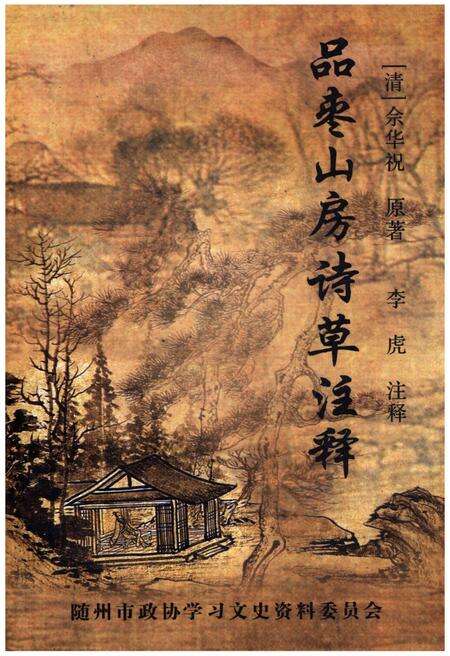 [清]佘华祝 原著 李虎 注释
品枣山房诗草注释
随州市政协学习文史资料委员会